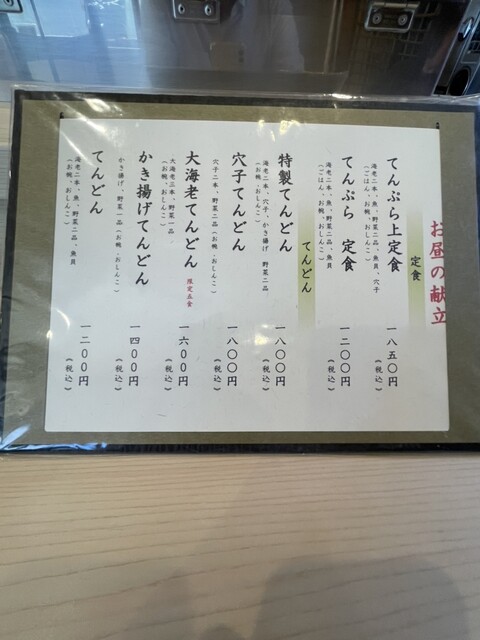 お昼の献立
定食
てんぷら上定食
海老二本、魚、野菜二品、魚貝、穴子
(ごはん、お椀、おしんこ)
一八五〇円
(税込)
てんぷら 定食
海老二本、魚、野菜二品、魚貝
(ごはん、お椀、おしんこ)
一二〇〇円
(税込)
てんどん
特製てんどん
海老二本、穴子、かき揚げ 野菜二品
(お椀、おしんこ)
一八〇〇円
(税込)
穴子てんどん
穴子二本、野菜二品(お椀、おしんこ)
一八〇〇円
(税込)
大海老てんどん 限定五食
大海老三本、野菜一品
(お椀、おしんこ)
一六〇〇円
(税込)
かき揚げてんどん
かき揚げ、野菜一品(お椀、おしんこ)
一四〇〇円
(税込)
てんどん
海老二本、魚、野菜二品、魚貝
(お椀、おしんこ)
一二〇〇円
(税込)